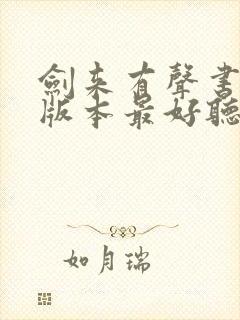 劍来有聲书
版本最好聽
如月瑞